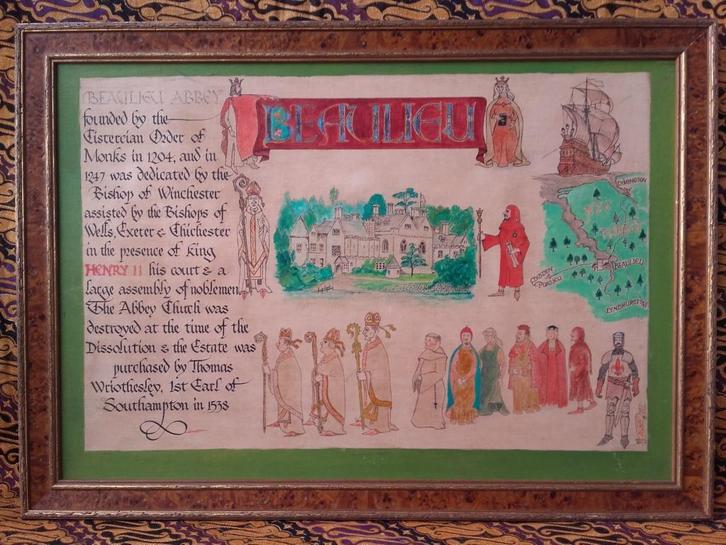 BEAULIEU ABBEY
founded by the
Cistercian Order of
Monks in 1204, and in
1247 was dedicated by the
Bishop of Winchester
assisted by the Bishops of
Wells, Exeter & Chichester
in the presence of king
HENRY II his court & a
large assembly of noblemen.
The Abbey Church was
destroyed at the time of the
Dissolution & the Estate was
purchased by Thomas
Wriothesley, 1st Earl of
Southampton in 1538
BEAULIEU
LYMINGTON
NEW
FOREST
BEAULIEU
LYNDHURST